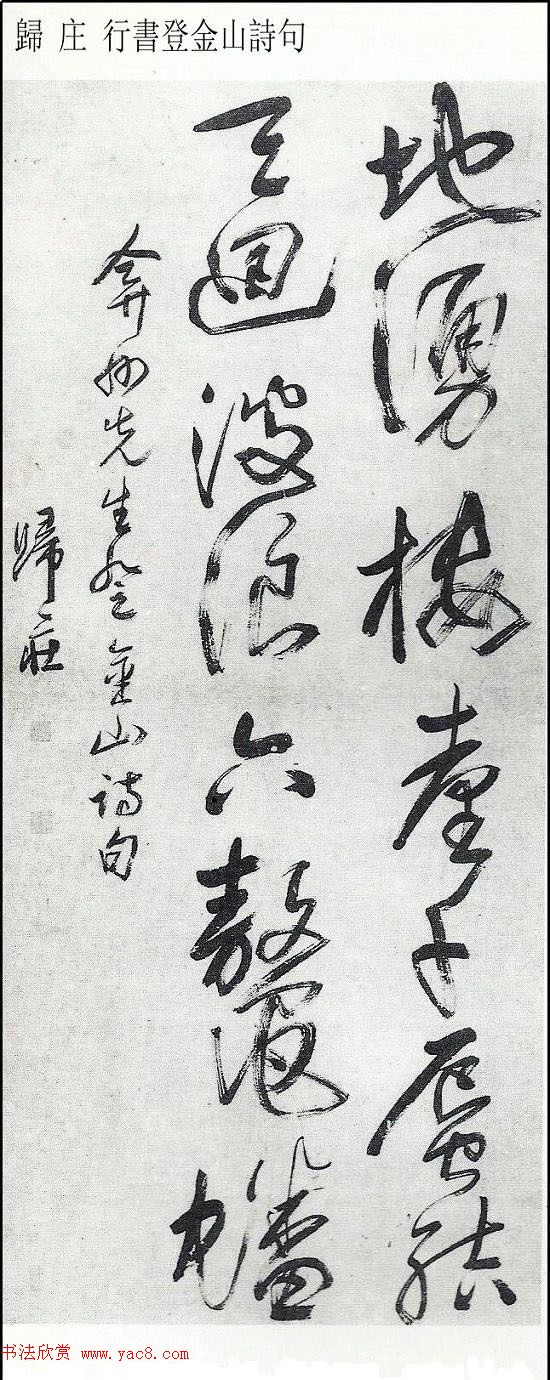 歸 庄 行書登金山詩句
地湧樓臺千蜃結
天迴波浪六鼇蟠
弇州先生登金山詩句
歸庄
书法欣赏 www.yac8.com